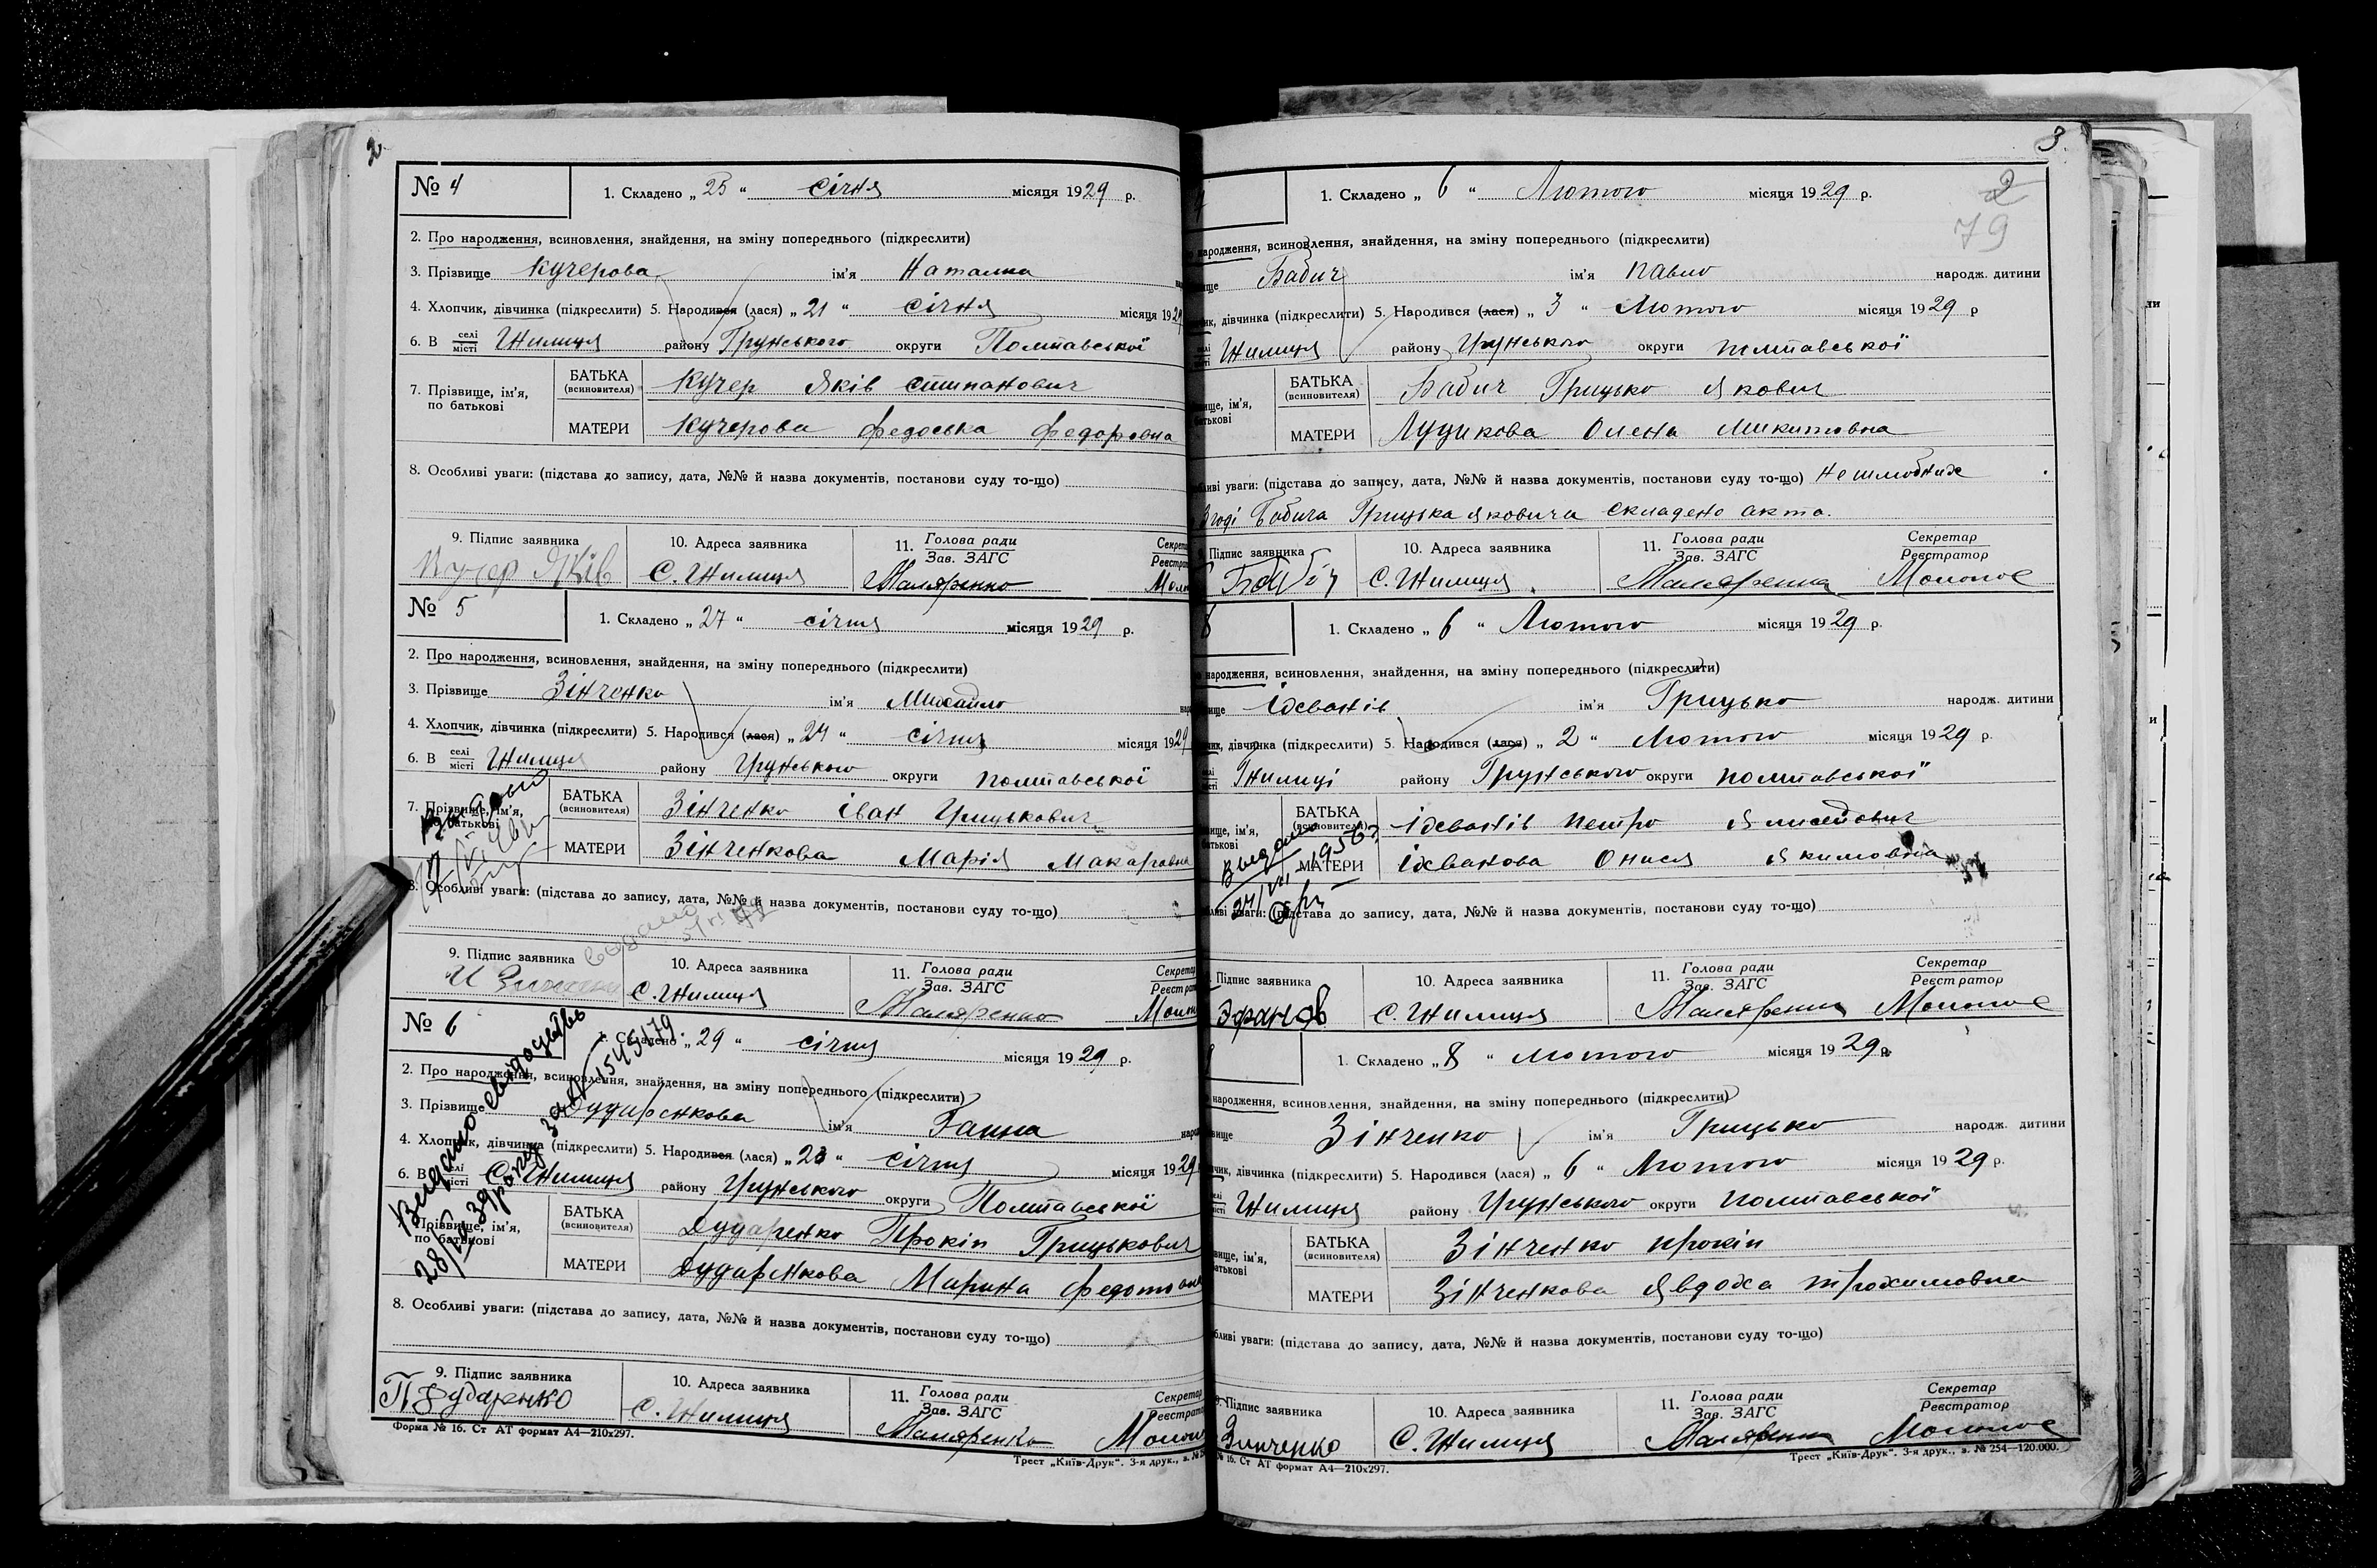 2
№ 4
1. Складено „ 25 “ січня місяця 1929 р.
2. Про народження, всиновлення, знайдення, на зміну попереднього (підкреслити)
3. Прізвище Кучерова ім'я Наталка
4. Хлопчик, дівчинка (підкреслити) 5. Народився (лася) „ 21 “ січня місяця 1929
6. В селі місті Гнилиця району Грунського округи Полтавської
7. Прізвище, ім'я, по батькові
БАТЬКА (всиновителя) Кучер Яків Стипанович
МАТЕРИ Кучерова Федоська Федоровна
8. Особливі уваги: (підстава до запису, дата, №№ й назва документів, постанови суду то-що)
9. Підпис заявника 10. Адреса заявника 11. Голова ради Зав. ЗАГС
Кучер Яків С. Гнилиця Маляренко
№ 5
1. Складено „ 27 “ січня місяця 1929 р.
2. Про народження, всиновлення, знайдення, на зміну попереднього (підкреслити)
3. Прізвище Зінченко ім'я Михайло
4. Хлопчик, дівчинка (підкреслити) 5. Народився (лася) „ 24 “ січня місяця 1929
6. В селі місті Гнилиця району Грунського округи Полтавської
7. Прізвище, ім'я, по батькові
БАТЬКА (всиновителя) Зінченко Іван Грицькович
МАТЕРИ Зінченкова Марія Макаровна
8. Особливі уваги: (підстава до запису, дата, №№ й назва документів, постанови суду то-що)
9. Підпис заявника 10. Адреса заявника 11. Голова ради Зав. ЗАГС
С. Гнилиця Маляренко
№ 6
1. Складено „ 29 “ січня місяця 1929 р.
2. Про народження, всиновлення, знайдення, на зміну попереднього (підкреслити)
3. Прізвище Дударенкова ім'я Ганна
4. Хлопчик, дівчинка (підкреслити) 5. Народився (лася) „ 23 “ січня місяця 1929
6. В селі місті С. Гнилиця району Грунського округи Полтавської
Прізвище, ім'я, по батькові
БАТЬКА (всиновителя) Дударенко Прокіп Грицькович
МАТЕРИ Дударенкова Марина
8. Особливі уваги: (підстава до запису, дата, №№ й назва документів, постанови суду то-що)
9. Підпис заявника 10. Адреса заявника 11. Голова ради Зав. ЗАГС
П Дударенко С. Гнилиця Маляренко
Форма № 16. Ст АТ формат А4—210х297.
Трест „Київ-Друк“. 3-я друк.,
3.
2
79
1. Складено „ 6 “ Лютого місяця 1929 р.
народження, всиновлення, знайдення, на зміну попереднього (підкреслити)
Бабич ім'я Павло народж. дитини
дівчинка (підкреслити) 5. Народився (лася) „ 3 “ Лютого місяця 1929 р
Гнилиця району Грунського округи Полтавської
БАТЬКА (всиновителя) Бабич Грицько Якович
МАТЕРИ Луцикова Олена Микитовна
уваги: (підстава до запису, дата, №№ й назва документів, постанови суду то-що)
Згоді Бабича Грицька Яковича складено акта.
Підпис заявника 10. Адреса заявника 11. Голова ради Зав. ЗАГС Секретар Реєстратор
Бабич С. Гнилиця Маляренко
8
1. Складено „ 6 “ Лютого місяця 1929 р.
народження, всиновлення, знайдення, на зміну попереднього (підкреслити)
ім'я Грицько народж. дитини
дівчинка (підкреслити) 5. Народився (лася) „ 2 “ Лютого місяця 1929 р.
Гнилиці району Грунського округи Полтавської
БАТЬКА (всиновителя) Петро
МАТЕРИ Якимовна
уваги: (підстава до запису, дата, №№ й назва документів, постанови суду то-що)
Підпис заявника 10. Адреса заявника 11. Голова ради Зав. ЗАГС Секретар Реєстратор
С. Гнилиця Маляренко
1. Складено „ 8 “ Лютого місяця 1929 р.
народження, всиновлення, знайдення, на зміну попереднього (підкреслити)
Зінченко ім'я Грицько народж. дитини
дівчинка (підкреслити) 5. Народився (лася) „ 6 “ Лютого місяця 1929 р.
Гнилиця району Грунського округи Полтавської
БАТЬКА (всиновителя) Зінченко Прокіп
МАТЕРИ Зінченкова Явдоха Трохимовна
уваги: (підстава до запису, дата, №№ й назва документів, постанови суду то-що)
Підпис заявника 10. Адреса заявника 11. Голова ради Зав. ЗАГС Секретар Реєстратор
Зинченко С. Гнилиця Маляренко
№ 16. Ст АТ формат А4—210х297.
Трест „Київ-Друк“. 3-я друк., з. № 254—120.000.